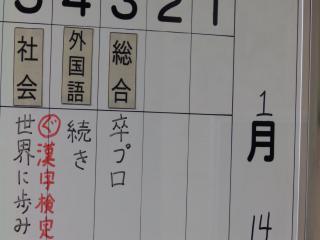 5 4 3 2 1
1月14
総合
卒プロ
外国語
続き
社会
㋖漢字検定
世界に歩み